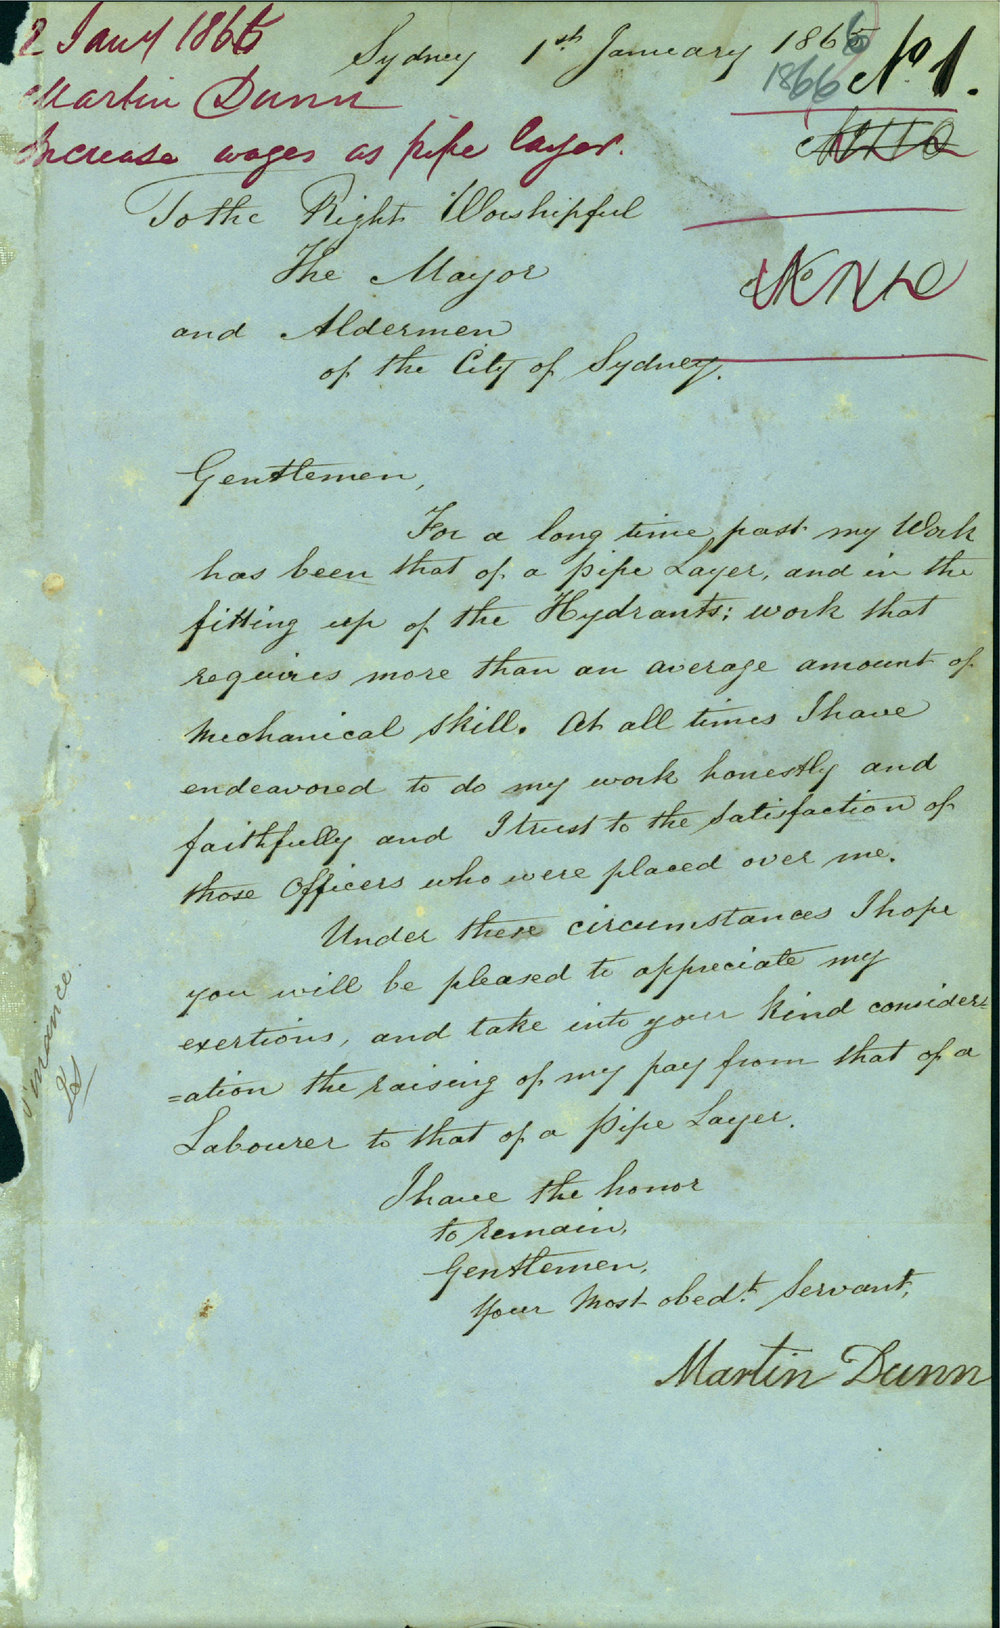 2 Jany 1866
Martin Dunn
Increase wages as pipe layer.
Sydney 1st January 1866
1866 No 1.
To the Right Worshipful
The Mayor
and Aldermen
of the City of Sydney.
Gentlemen,
For a long time past my Work
has been that of a pipe Layer, and in the
fitting up of the Hydrants; work that
requires more than an average amount of
Mechanical skill. At all times I have
endeavored to do my work honestly and
faithfully and I trust to the satisfaction of
those Officers who were placed over me.
Under these circumstances I hope
you will be pleased to appreciate my
exertions, and take into your kind consider=
=ation the raising of my pay from that of a
Labourer to that of a Pipe Layer.
I have the honor
to remain,
Gentlemen,
Your Most obedt. Servant,
Martin Dunn
Finance